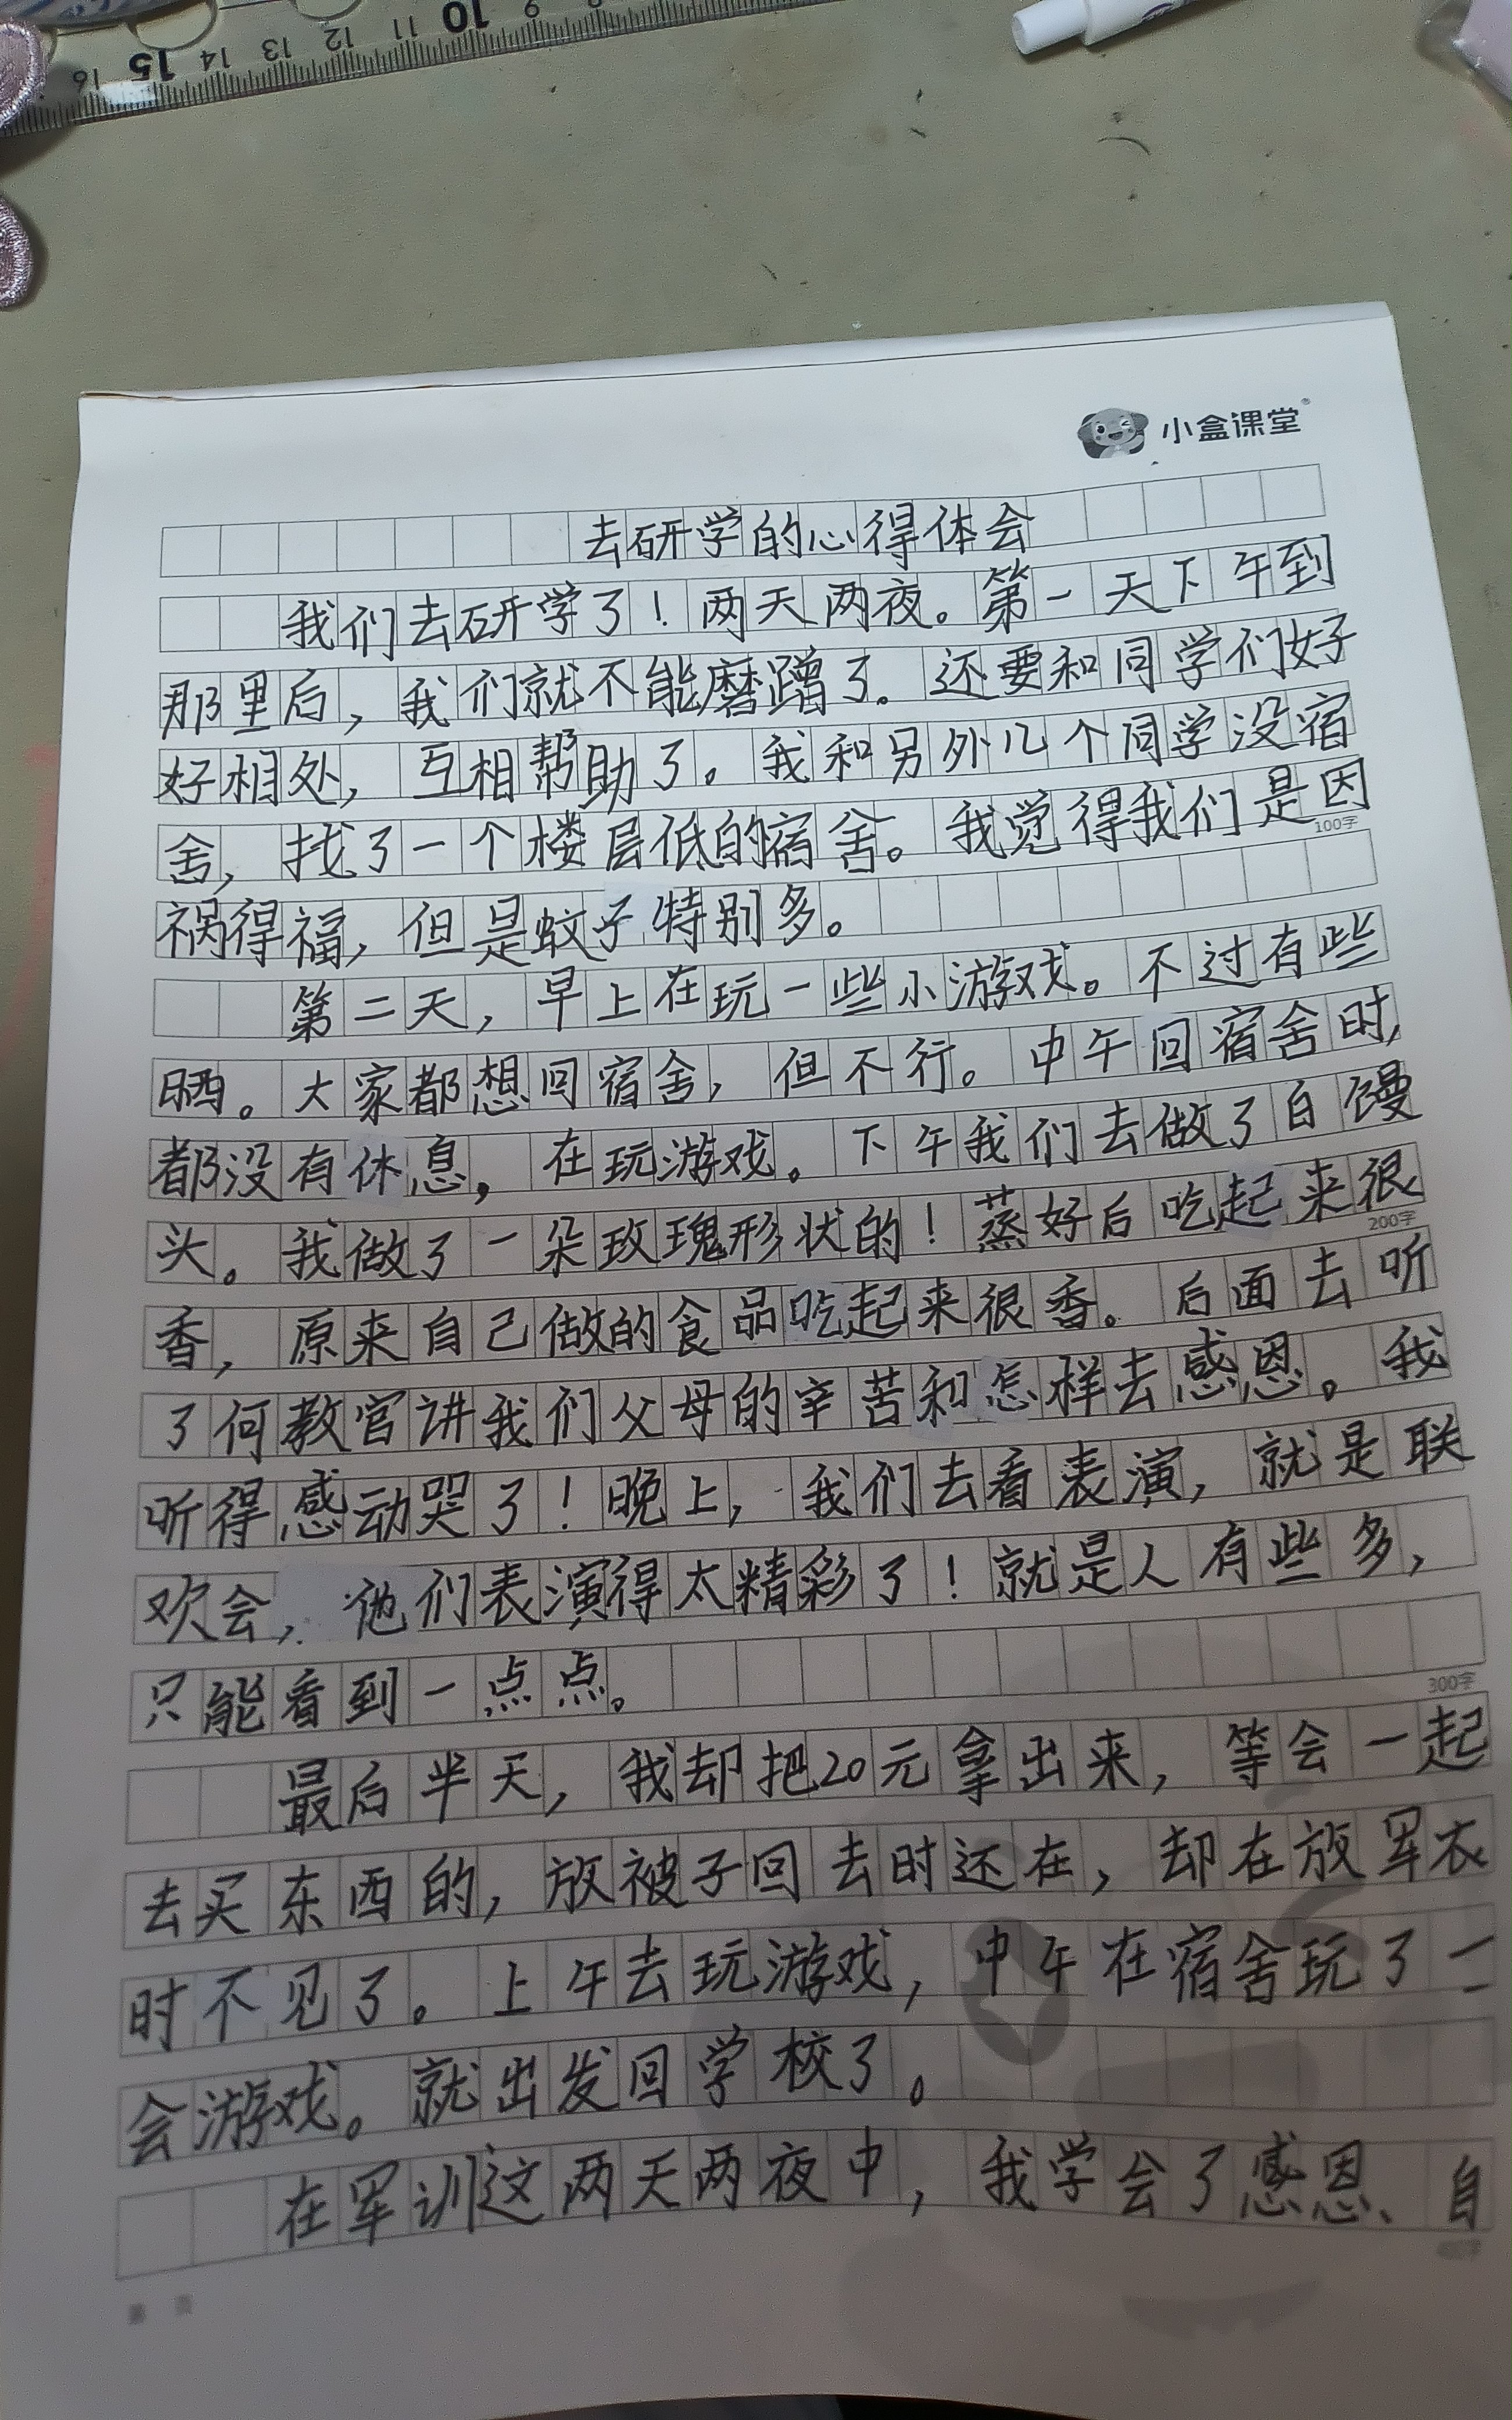 16 15 14 13 12 11 10 9 8
小盒课堂
去研学的心得体会
我们去研学了！两天两夜。第一天下午到
那里后，我们就不能磨蹭了。还要和同学们好
好相处，互相帮助了。我和另外几个同学没宿
舍，找了一个楼层低的宿舍。我觉得我们是因
100字
祸得福，但是蚊子特别多。
第二天，早上在玩一些小游戏。不过有些
晒。大家都想回宿舍，但不行。中午回宿舍时，
都没有休息，在玩游戏。下午我们去做了白馒
头。我做了一朵玫瑰形状的！蒸好后吃起来很
200字
香，原来自己做的食品吃起来很香。后面去听
了何教官讲我们父母的辛苦和怎样去感恩。我
听得感动哭了！晚上，我们去看表演，就是联
欢会，他们表演得太精彩了！就是人有些多，
只能看到一点点。
300字
最后半天，我却把20元拿出来，等会一起
去买东西的，放被子回去时还在，却在放军衣
时不见了。上午去玩游戏，中午在宿舍玩了一
会游戏。就出发回学校了。
在军训这两天两夜中，我学会了感恩、自
400字
第 页